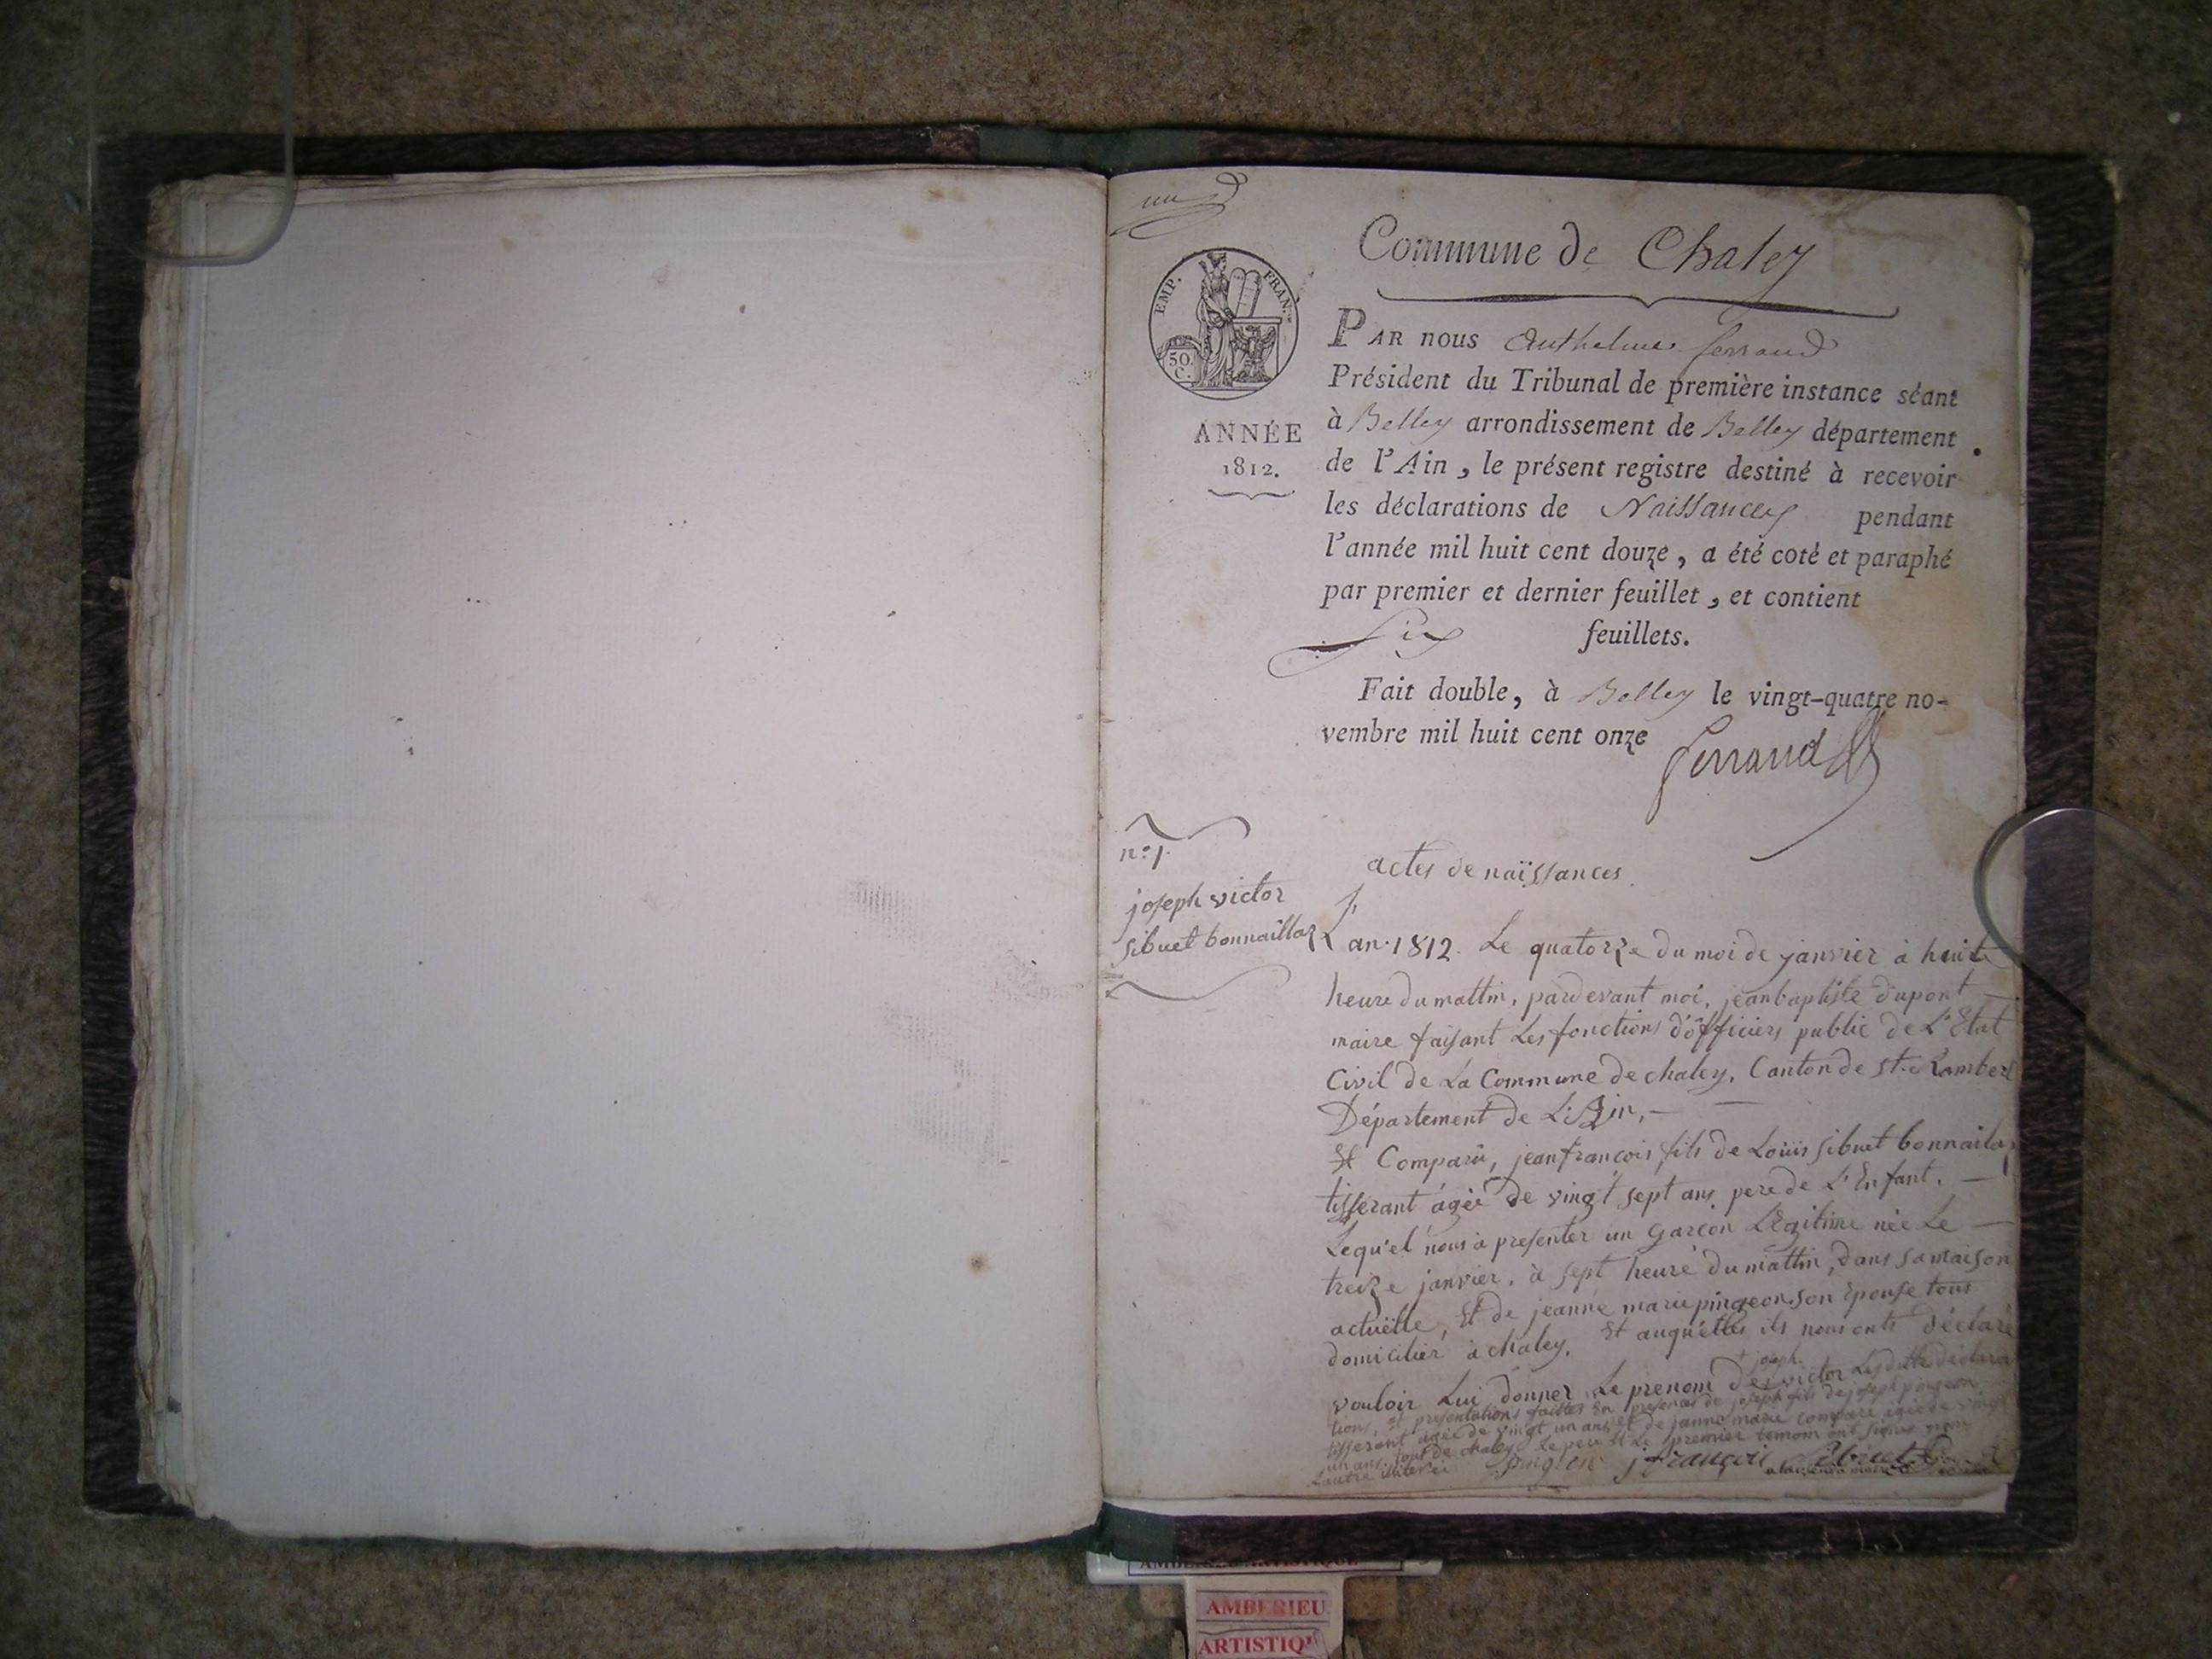 un
Commune de Chaley
EMP. FRAN.
50.
C.
ANNÉE
1812.
PAR nous Anthelme ferrand
Président du Tribunal de première instance séant
à Belley arrondissement de Belley département
de l'Ain, le présent registre destiné à recevoir
les déclarations de Naissances pendant
l'année mil huit cent douze, a été coté et paraphé
par premier et dernier feuillet, et contient
six feuillets.
Fait double, à Belley le vingt-quatre no-
vembre mil huit cent onze
ferrand
n.º 1.
joseph victor
sibuet bonnaillaz
actes de naïssances.
L'an 1812. Le quatorze du moi de janvier à huit
heure du mattin, pardevant moi, jean baptiste dupont
maire faisant Les fonctions d'officiers public de L'Etat
Civil de La Commune de chaley, Canton de St. Rambert
Département de L'Ain,
Et Comparu, jean françois fils de Louis sibuet bonnaila
tisserant ágeé de vingt sept ans pere de L'Enfant.
Lequ'el nous à presenter un Garçon Légitime née Le
treize janvier, à sept heure du mattin, dans sa maison
actuëlle, Et de jeanne marie pingeon son Epouse tous
domicilier à chaley. Et auquélles ils nous onts déclaré
vouloir Lui donner Le prenom de joseph victor Les ditte déclara
tions, et presentations faittes En presences de joseph fils de joseph pingeon
tisserant ageé de vingt un ans et de janne marie comparé agée de vingt
un ans, tous de chaley Le pere Et Le premier temoin ont signés
L'autre
pingeon j françois sibuet
AMBERIEU
ARTISTIQ